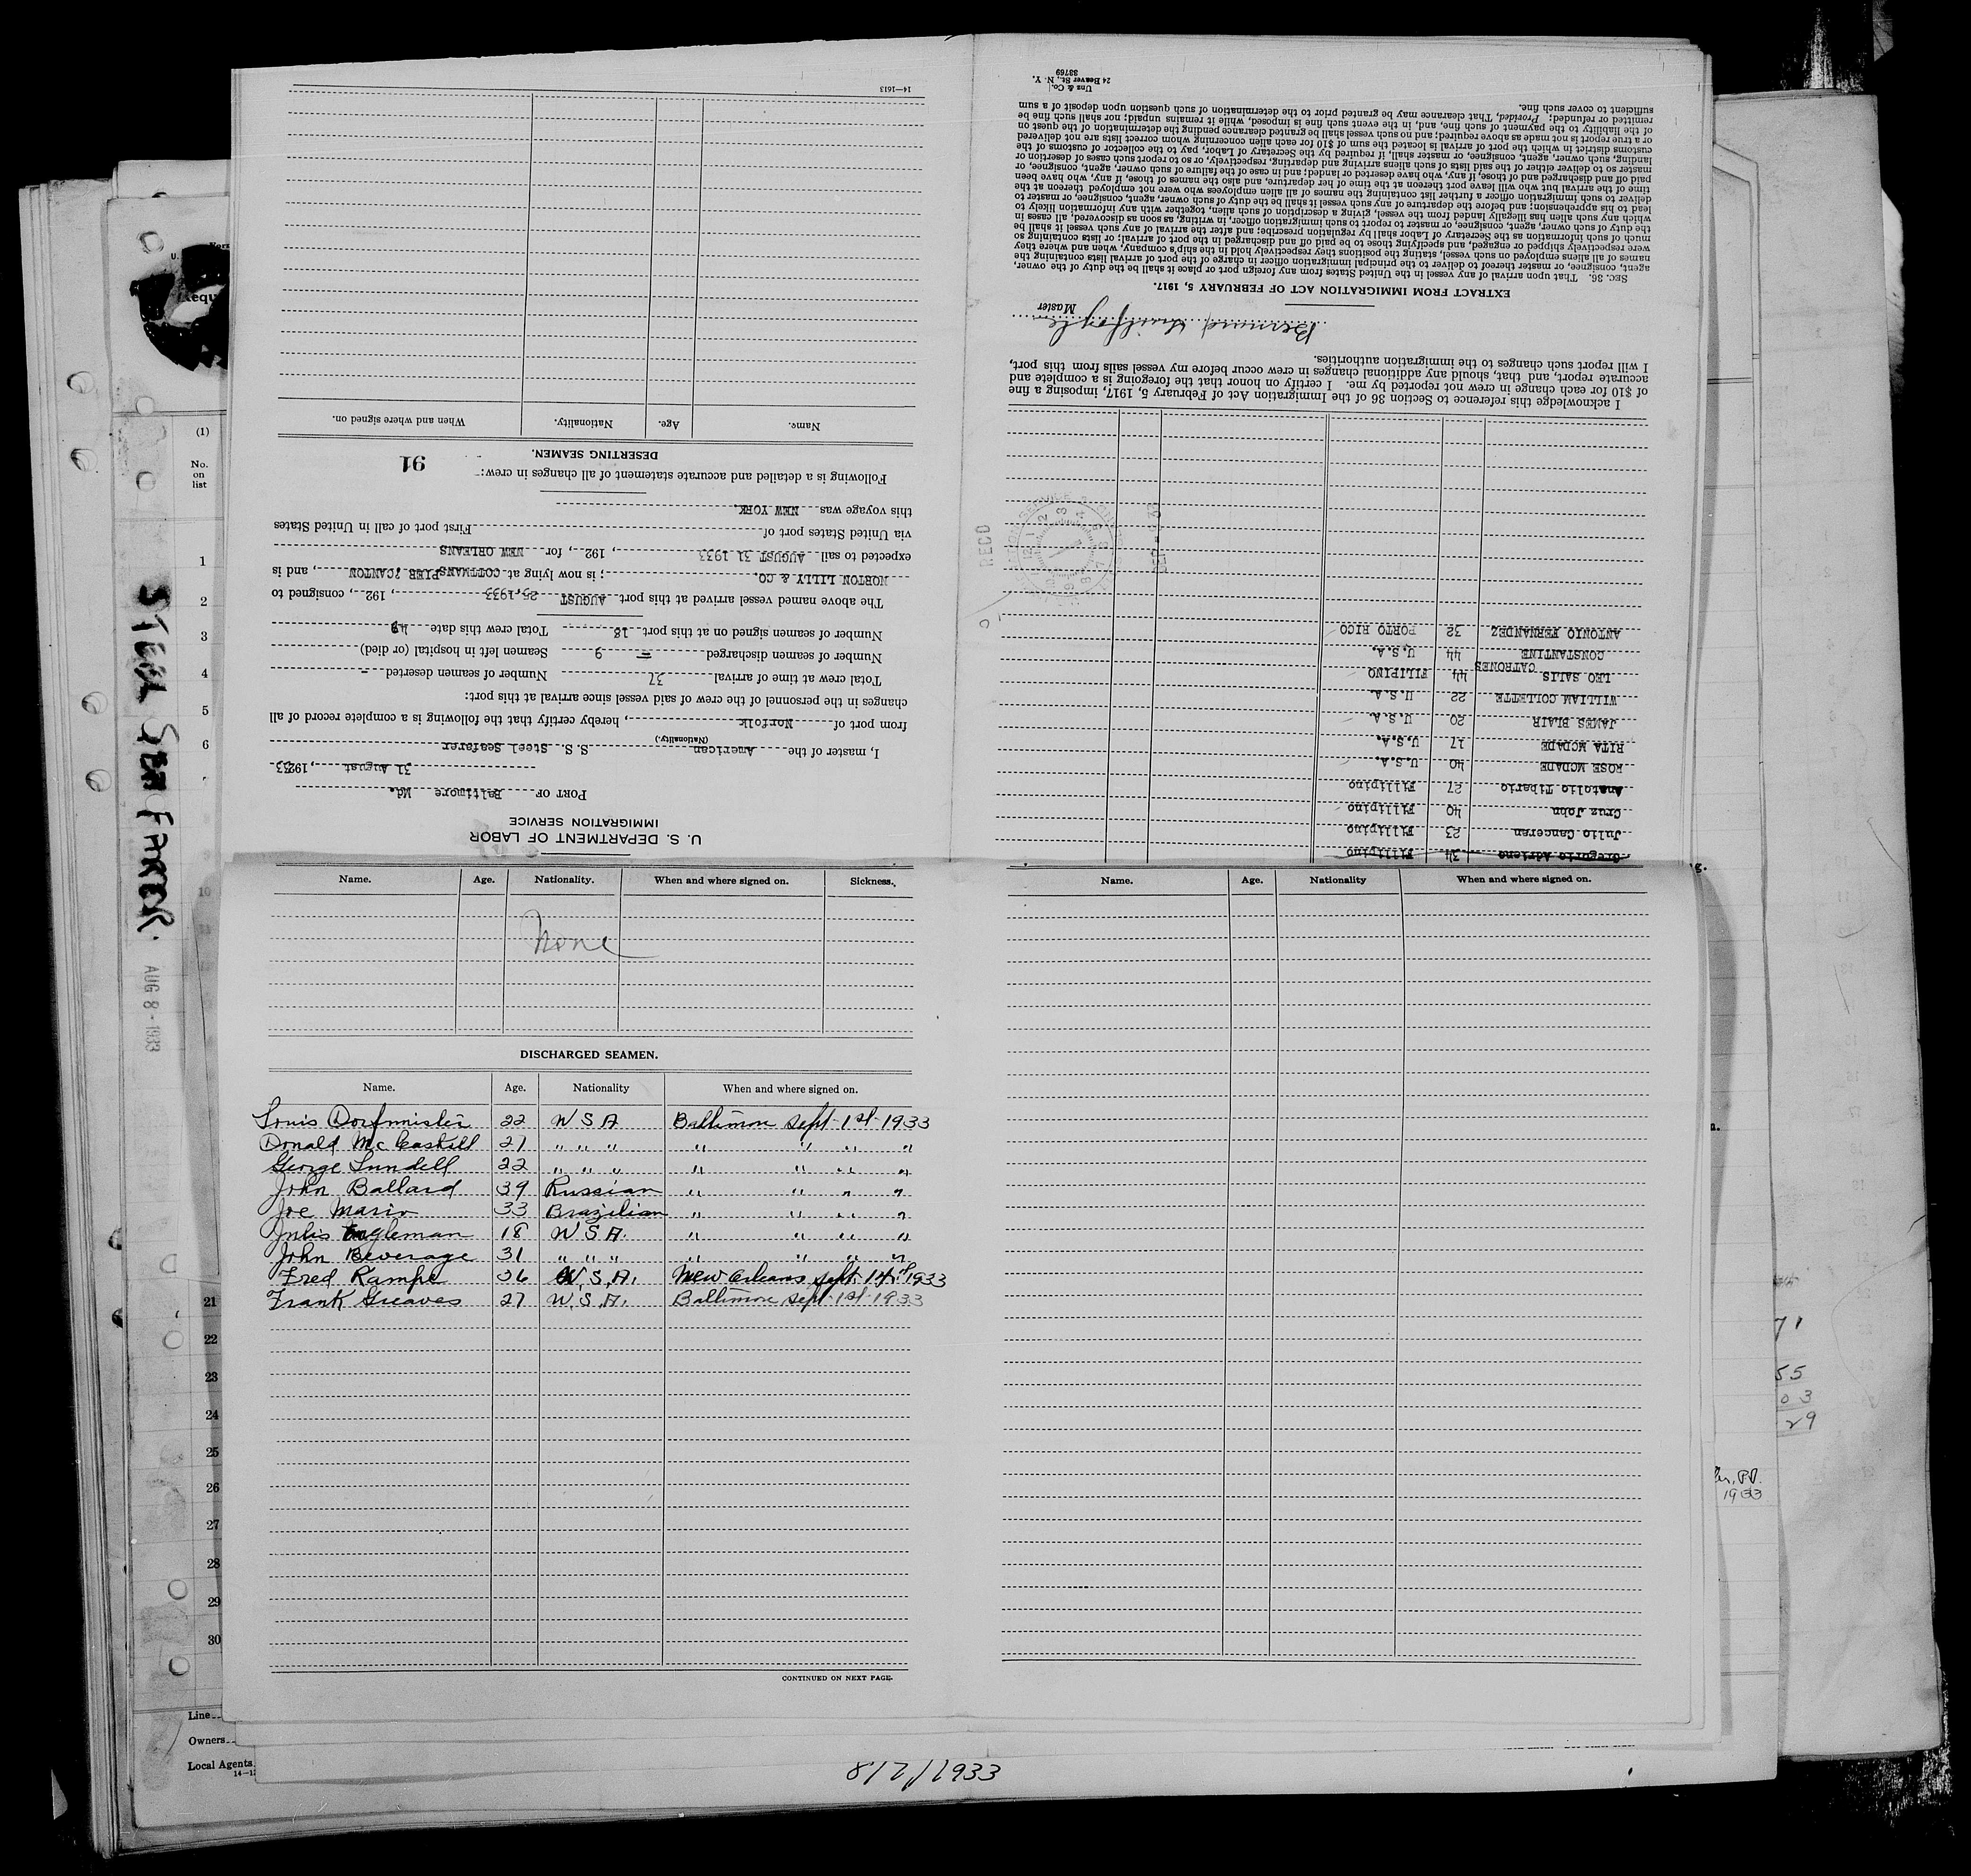 U. S. DEPARTMENT OF LABOR
IMMIGRATION SERVICE
PORT OF Baltimore Md.
31 August, 1933
I, master of the American S. S. Steel Seafarer
(Nationality.)
from port of Norfolk, hereby certify that the following is a complete record of all
changes in the personnel of the crew of said vessel since arrival at this port:
Total crew at time of arrival 37 Number of seamen deserted -
Number of seamen discharged 9 Seamen left in hospital (or died)
Number of seamen signed on at this port 18 Total crew this date 49
The above named vessel arrived at this port AUGUST 25, 1933, 192 , consigned to
NORTON LILLY & CO. ; is now lying at COTTMANS PIER ;CANTON , and is
expected to sail AUGUST 31 1933 , 192 , for NEW ORLEANS
via United States port of First port of call in United States
this voyage was NEW YORK.
Following is a detailed and accurate statement of all changes in crew:
DESERTING SEAMEN. 91
Name. Age. Nationality. When and where signed on.
14—1613
Gregorio Adriano 34 Fillipino
Julio Canceran 23 Fillipino
Cruz John 40 Fillipino
Anatolio Tibario 27 Fillipino
ROSE MCDADE 40 U.S.A.
RITA MCDADE 17 U.S.A.
JAMES BLAIR 20 U.S.A.
WILLIAM COLLETTE 22 U.S.A.
LEO SALIS 44 FILIPINO
CONSTANTINE CATRONES 44 U.S.A.
ANTONIO FERNANDEZ 32 PORTO RICO
RECD
I acknowledge this reference to Section 36 of the Immigration Act of February 5, 1917, imposing a fine
of $10 for each change in crew not reported by me. I certify on honor that the foregoing is a complete and
accurate report, and that, should any additional changes in crew occur before my vessel sails from this port,
I will report such changes to the immigration authorities.
Master
EXTRACT FROM IMMIGRATION ACT OF FEBRUARY 5, 1917.
SEC. 36. That upon arrival of any vessel in the United States from any foreign port or place it shall be the duty of the owner,
agent, consignee, or master thereof to deliver to the principal immigration officer in charge of the port of arrival lists containing the
names of all aliens employed on such vessel, stating the positions they respectively hold in the ship's company, when and where they
were respectively shipped or engaged, and specifying those to be paid off and discharged in the port of arrival; or lists containing so
much of such information as the Secretary of Labor shall by regulation prescribe; and after the arrival of any such vessel it shall be
the duty of such owner, agent, consignee, or master to report to such immigration officer, in writing, as soon as discovered, all cases in
which any such alien has illegally landed from the vessel, giving a description of such alien, together with any information likely to
lead to his apprehension; and before the departure of any such vessel it shall be the duty of such owner, agent, consignee, or master to
deliver to such immigration officer a further list containing the names of all alien employees who were not employed thereon at the
time of the arrival but who will leave port thereon at the time of her departure, and also the names of those, if any, who have been
paid off and discharged and of those, if any, who have deserted or landed; and in case of the failure of such owner, agent, consignee, or
master so to deliver either of the said lists of such aliens arriving and departing, respectively, or so to report such cases of desertion or
landing, such owner, agent, consignee, or master shall, if required by the Secretary of Labor, pay to the collector of customs of the
customs district in which the port of arrival is located the sum of $10 for each alien concerning whom correct lists are not delivered
or a true report is not made as above required; and no such vessel shall be granted clearance pending the determination of the quest on
of the liability to the payment of such fine, and, in the event such fine is imposed, while it remains unpaid; nor shall such fine be
remitted or refunded: Provided, That clearance may be granted prior to the determination of such question upon deposit of a sum
sufficient to cover such fine.
Unz & Co.
24 Beaver St., N. Y.
33769
Name. Age. Nationality. When and where signed on. Sickness.
None
DISCHARGED SEAMEN.
Name. Age. Nationality When and where signed on.
Louis Dorfmister 22 U S A Baltimore Sept 1st 1933
Donald McCaskill 21 " " " " " " "
George Lundell 22 " " " " " " "
John Ballard 39 Russian " " " "
Joe Mario 33 Brazilian " " " "
Julis Engleman 18 U S A. " " " "
John Beverage 31 " " " " " " "
Fred Kampe 36 U.S.A. New Orleans Sept 1933
Frank Greaves 27 U.S.A. Baltimore Sept 1st 1933
CONTINUED ON NEXT PAGE.
Name. Age. Nationality When and where signed on.
STEEL SEAFARER.
AUG 8 - 1933
(1)
No.
on
list
1
2
3
4
5
6
7
10
21
22
23
24
25
26
27
28
29
30
Line
Owners
Local Agents
55
03
29
1933